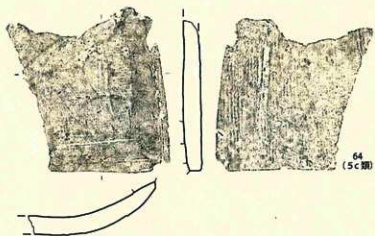 64
(5c類)